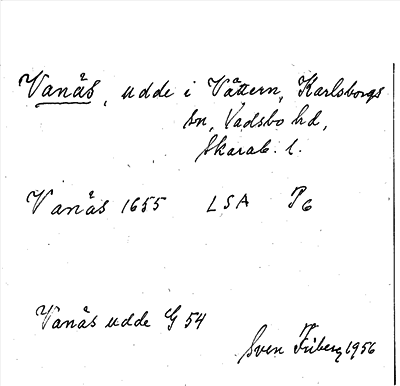 Vanäs, udde i Vättern, Karlsborgs
sn, Vadsbo hd,
Skarab. l.
Vanäs 1655 LSA P6
Vanäs udde G 54
Sven Fiberg 1956